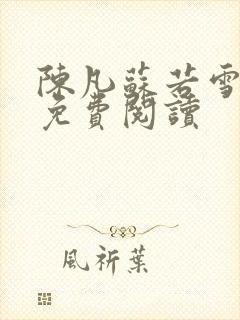 陳凡蘇若雪
免費閱讀
風祈葉